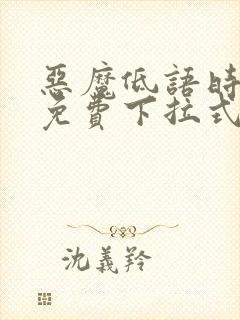 惡魔低語時
免費下拉式
沈義羚